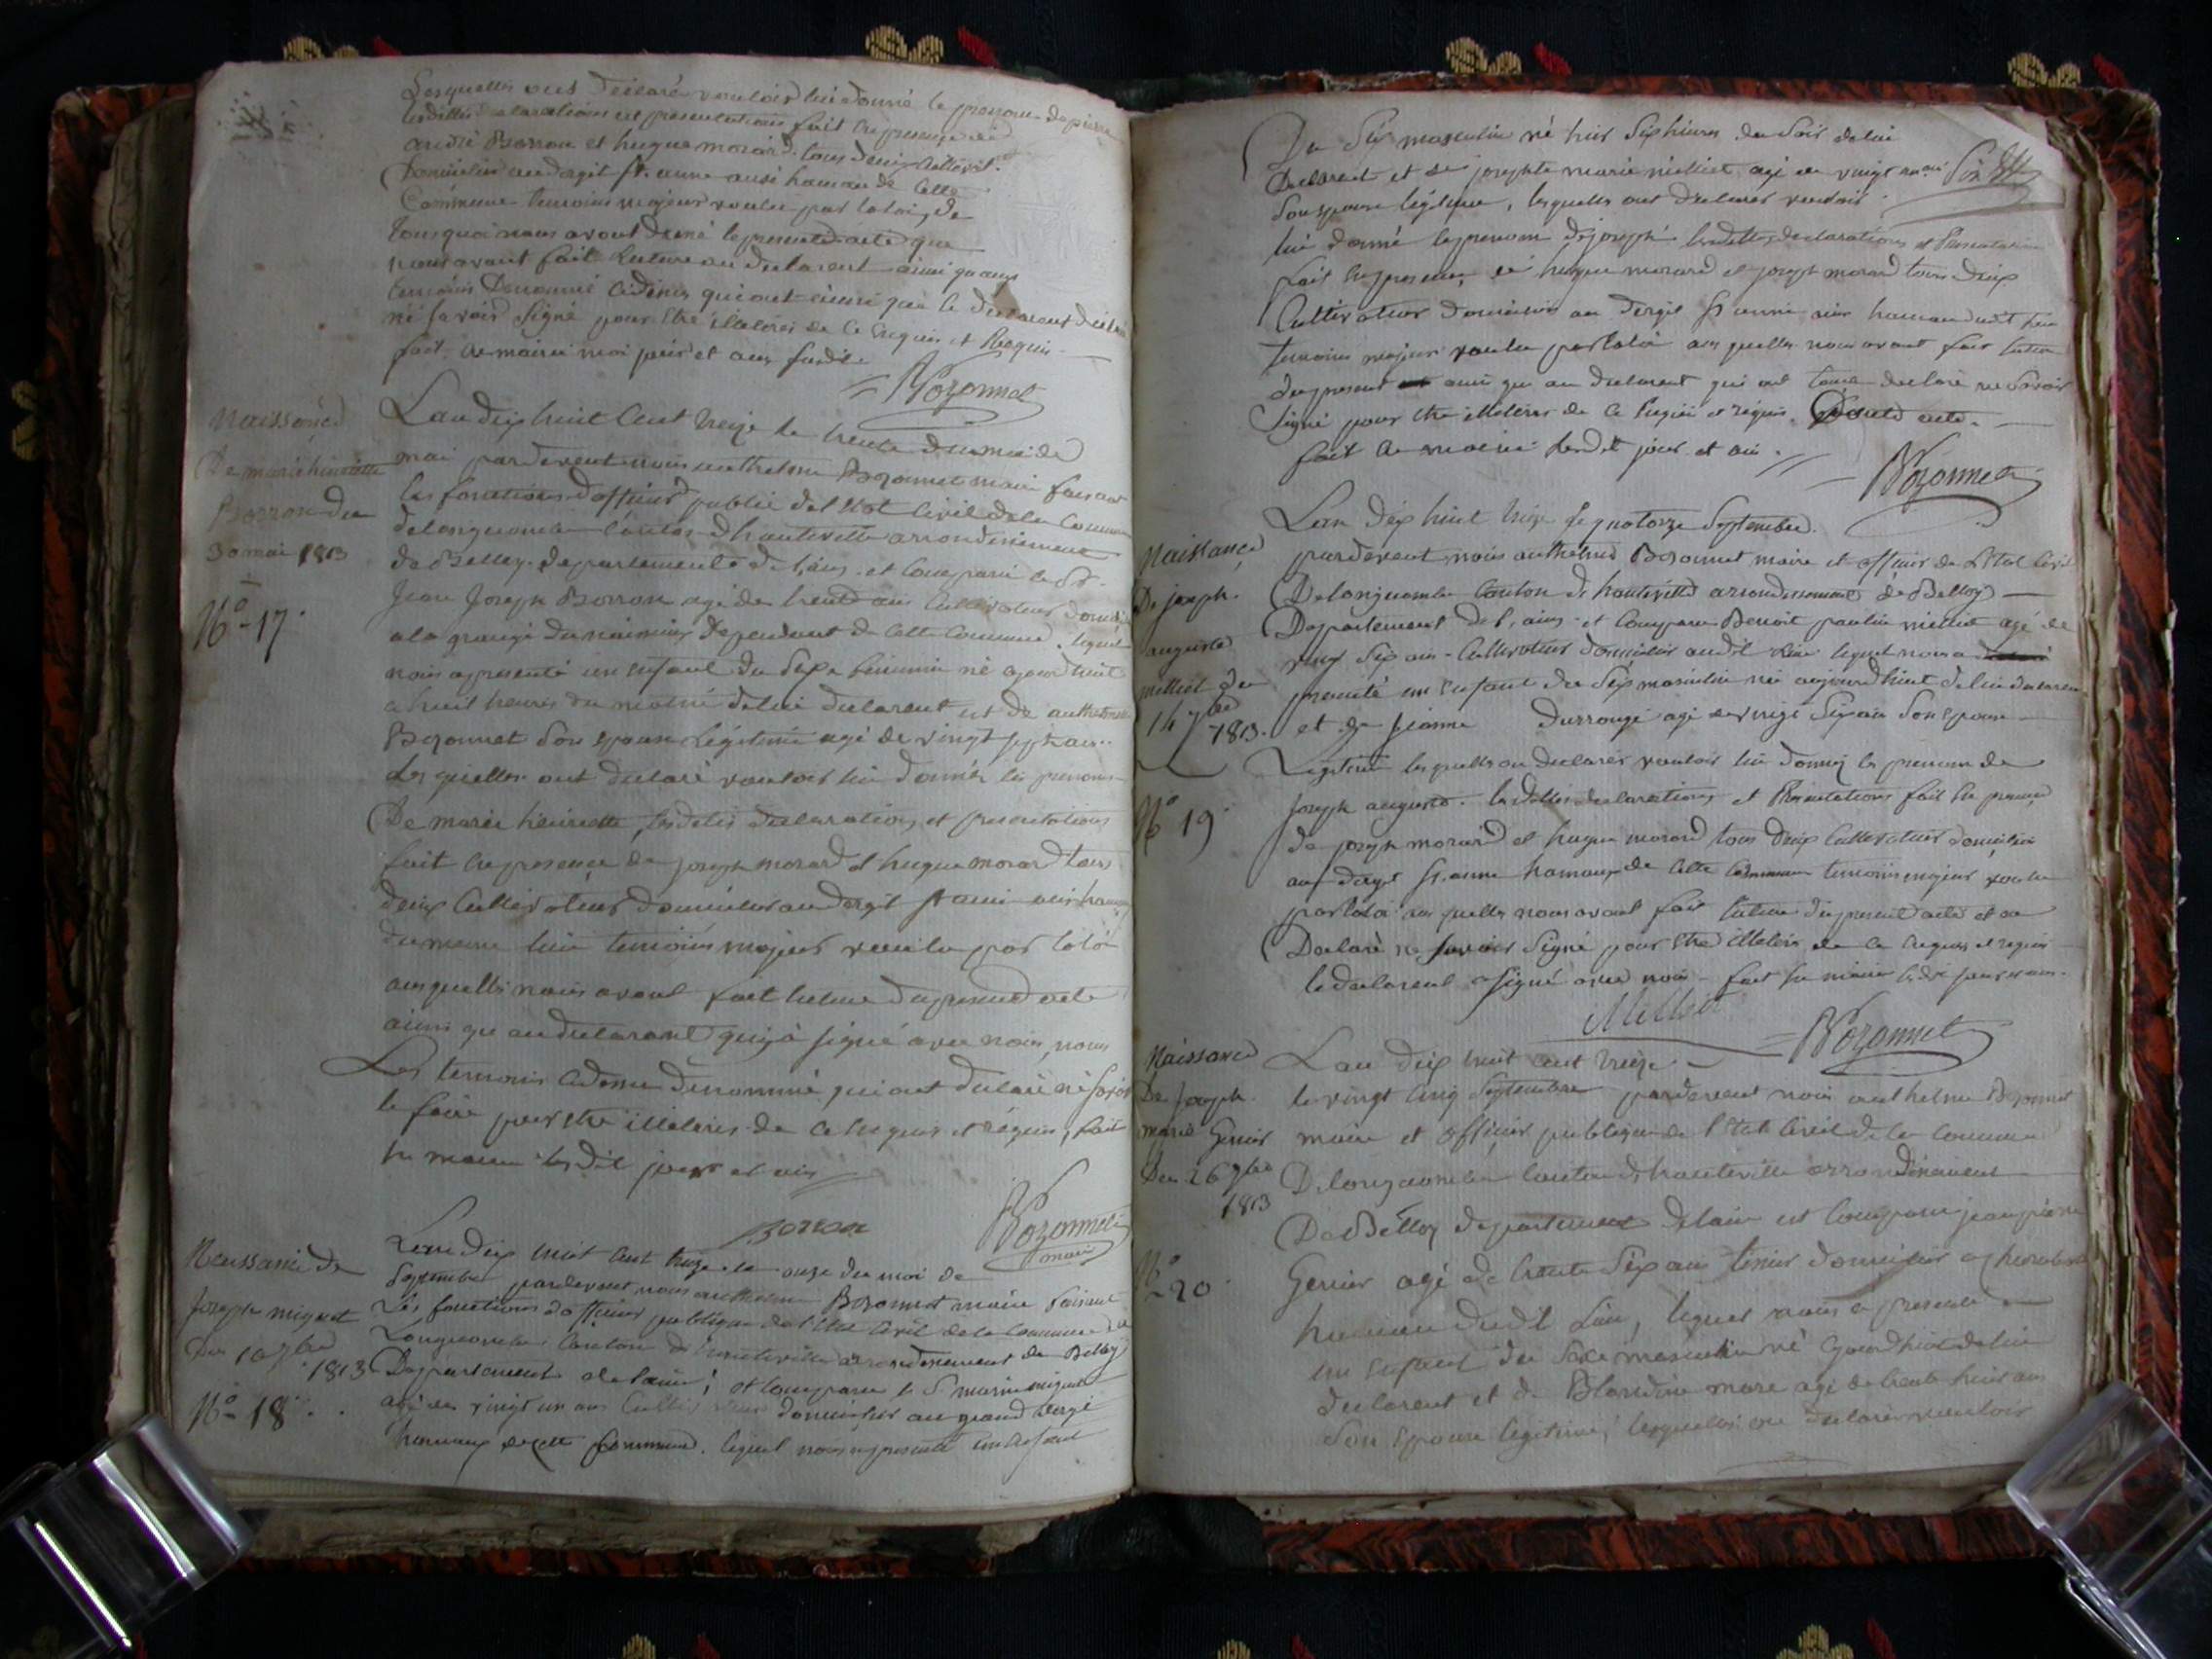 Lesquelles ont déclaré vouloir lui donné le prenom de pierre
lesdittes declarations et presentations fait en presence de
andré Borron et hugue morard tous deux Cultivat.
Domicilié au dergit St. anne ausi hamau de Cette
Commune temoins majeur voulu par la loi, de
Tous quoi nous avont dréssé le present acte que
nous avont fait lecture au declarent ainsi qu'aux
temoins Denommé cidesus qui ont ainsi que le declarent déclaré
ne savoir Signé pour être illeterés de ce enquis et Requis
fait en mairie moi jour et an susdit
Bozonnet
Naissance
De marie hinriette
Borron du
30 mai 1813
N° 17.
Lan dix huit Cent treize le trente du moi de
mai pardevent nous anthelme Bozonnet maire faisant
les fonctions d'officier public de l'Etat Civil de la Commune
de longecombe Canton d'hauteville arrondissement
de Belley. departement de l'ain. et Comparu le Sr.
Jean Joseph Borron agé de trente ans Cultivateur domicilié
a la grange du dependant de Cette Commune. lequel
nous a presenté un enfant du Sexe feminin né ajourd'huit
a huit heures du matin de lui declarent et de anthelmette
Bozonnet Son Epouse Légitime agé de vingt sept ans.
Les quelles ont declaré vouloir lui donner les prenoms
De marie hinriette, lesdites declarations et presentations
fait en presence de joseph morard et hugue morard tous
deux Cultivateurs domicilié au dergit St anne ausi hamaux
du meme lieu temoins majeur voulu par la loi
auxquelles nous avont fait lecture du present acte
ainsi que au declarant qui à signé avec nous, nous
Les temoins cidesus denommé qui ont declaré ne savoir
le faire pour être illeterés de ce enquis et requis, fait
en mairie lesdit jour et an
Borron
Bozonnet
maire
Naissance de
Joseph miguet
Du 10 7bre
1813
N° 18.
Lan dix huit Cent treize le onze du moi de
Septembre pardevent nous anthelme Bozonnet maire faisant
Les fonctions d'officier publique de l'Etat Civil de la Commune de
Longecombe Canton d'hauteville arrondissement de Belley
Departement de l'ain; et Comparu le S. marin miguet
agé de vingt un ans Cultivateur domicilier au grand dergit
hamaux de cette Commune. lequel nous a presenté un enfant
Du Séx masculin né hier Six heures du Soir de lui
Declarent et de josephte marie milliet agé de vingt
Son epouse légitime, lesquelles ont declarés vouloir
lui donné le prenom de joseph lesdittes declarations et Presentation
fait en presence de hugue morard et joseph morard tous deux
Cultivateur domicilié au dergit St anne ausi hamau dudit lieu
temoins majeur voulu par la loi auxquelles nous avont fait lecture
du present ainsi que au declarent qui ont tous declaré ne Savoir
Signé pour être illeterés de ce enquis et requis. Dont acte.
fait en mairie lesdit jour et an.
Bozonnet
Naissance
De joseph
auguste
milliet du
14 7bre
1813.
N° 19.
Lan dix huit treize le quatorze Septembre.
pardevent nous anthelme Bozonnet maire et officier de l'Etat Civil
De longecombe Canton d'hauteville arrondissement de Belley
Departement de l'ain. et Comparu Benoit paulin milliet agé de
vingt Six ans Cultivateur domicilié audit lieu lequel nous a
presenté un enfant du Séx masculin né aujourd'huit de lui declarent
et de jeanne Durrongé agé de vingt Six ans Son Epouse
Legitime lesquells on declarés vouloir lui donner le prenom de
Joseph auguste. lesdittes declarations et Presentations fait en presence
de joseph morard et hugue morard tous deux Cultivateur domicilié
au dergit St. anne hamaux de Cette Commune temoins majeur voulu
par la loi auxquelles nous avont fait lecture du present acte et on
Declaré ne savoir Signé pour être illeterés de ce enquis et requis
le declarent a signé avec nous fait en mairie ledit jour et an.
Milliet
Bozonnet
Naissance
De Joseph
marie Genier
Du 26 7bre
1813
N° 20.
Lan dix huit cent treize
le vingt Cinq Septembre pardevent nous anthelme Bozonnet
maire et officier publique de l'Etat Civil de la Commune
De longecombe Canton d'hauteville arrondissement
De Belley departement de l'ain et Comparu jean pierre
Genier agé de trente Six ans domicilier a
hamau dudit Lieu, lequel nous a presenté
un enfant du Séxe masculin né ajourd'hiut de lui
declarent et de Blandine mare agé de trente huit ans
Son Epouse légitime, lesquelles on declarés vouloir